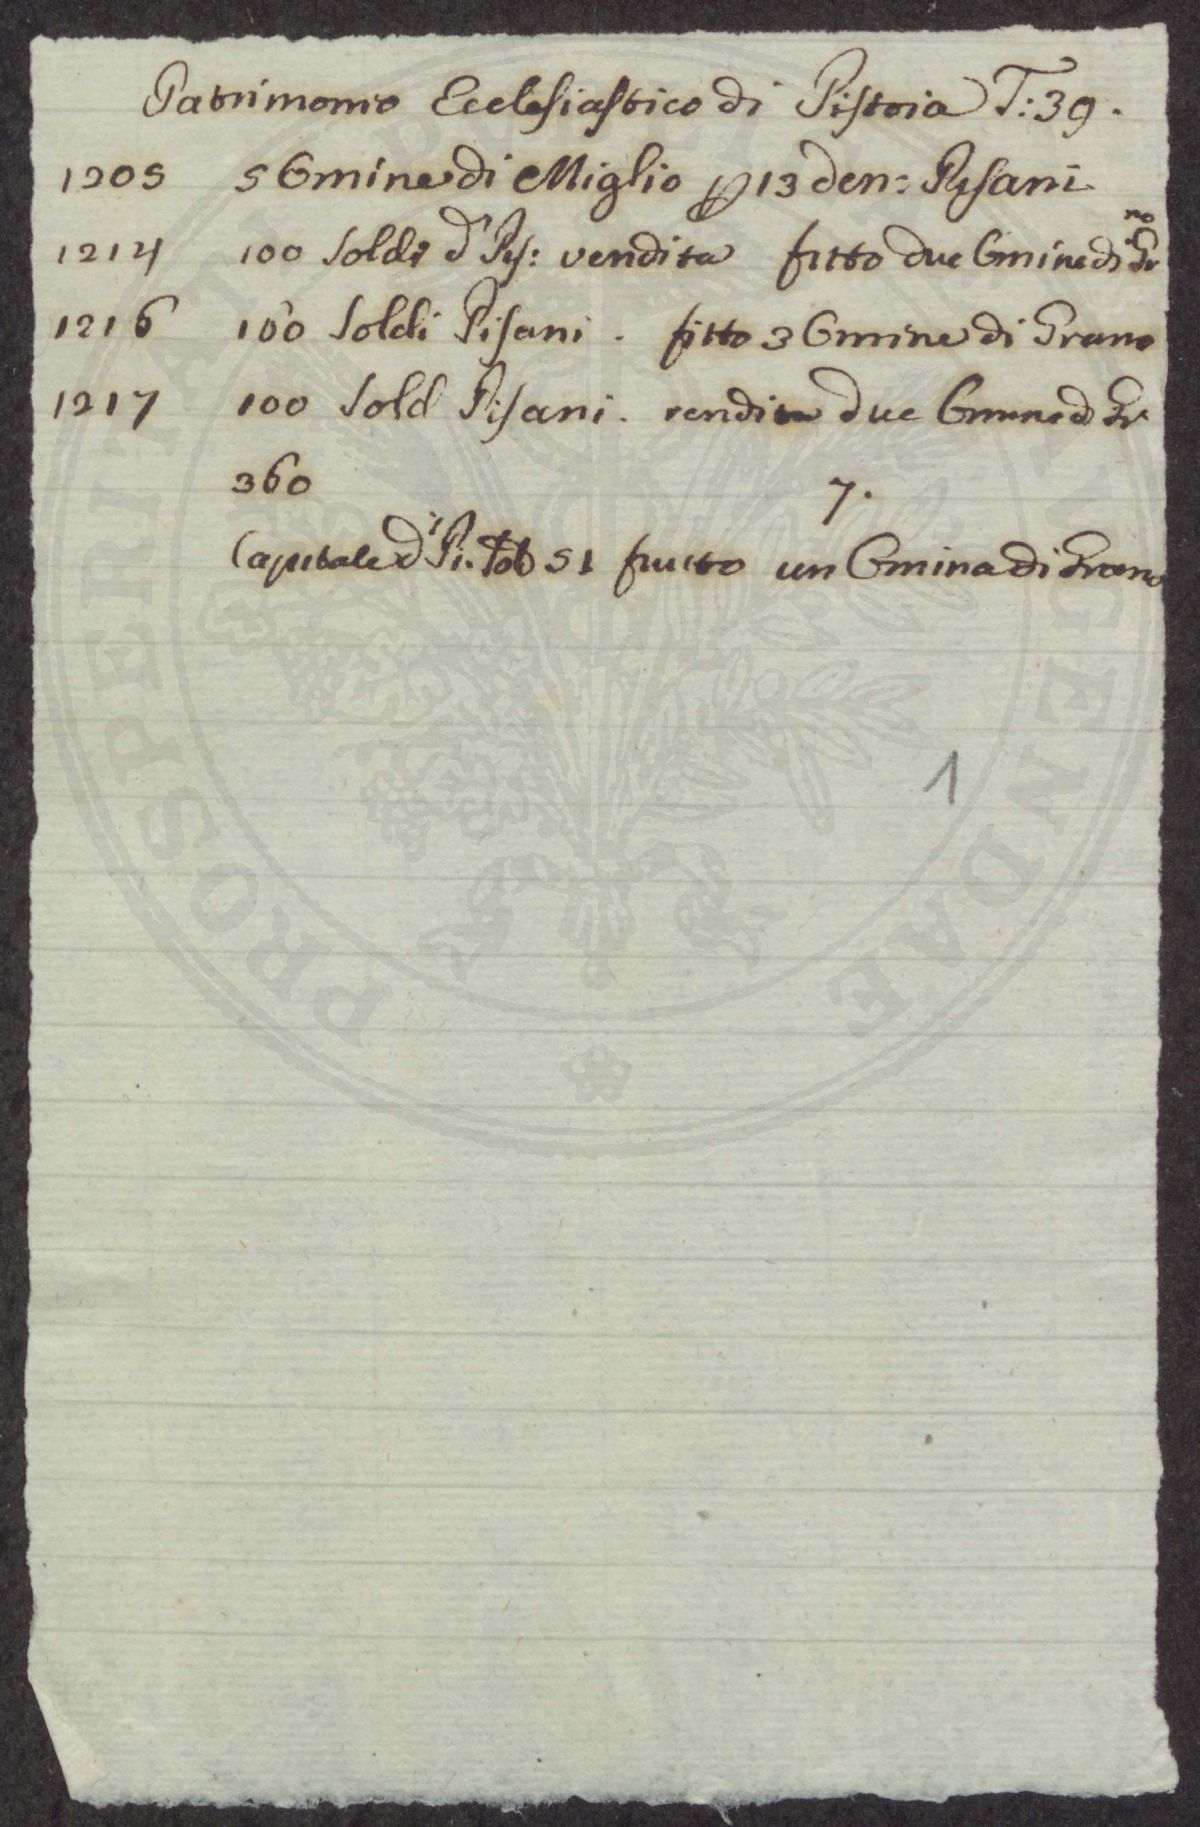 Patrimonio Ecclesiastico di Pistoia T: 39.
1205 5 Emine di Miglio p 13 den: Pisani
1214 100 Soldi d Pis: vendita fitto due Emine di Gr no
1216 160 Soldi Pisani. fitto 3 Emine di Grano
1217 100 Sold Pisani. vendita due Emine d Gr
360 7.
Capitale di Pi. 51 frutto un Emina di Grano
1
PROSPERITATI AUGENDAE